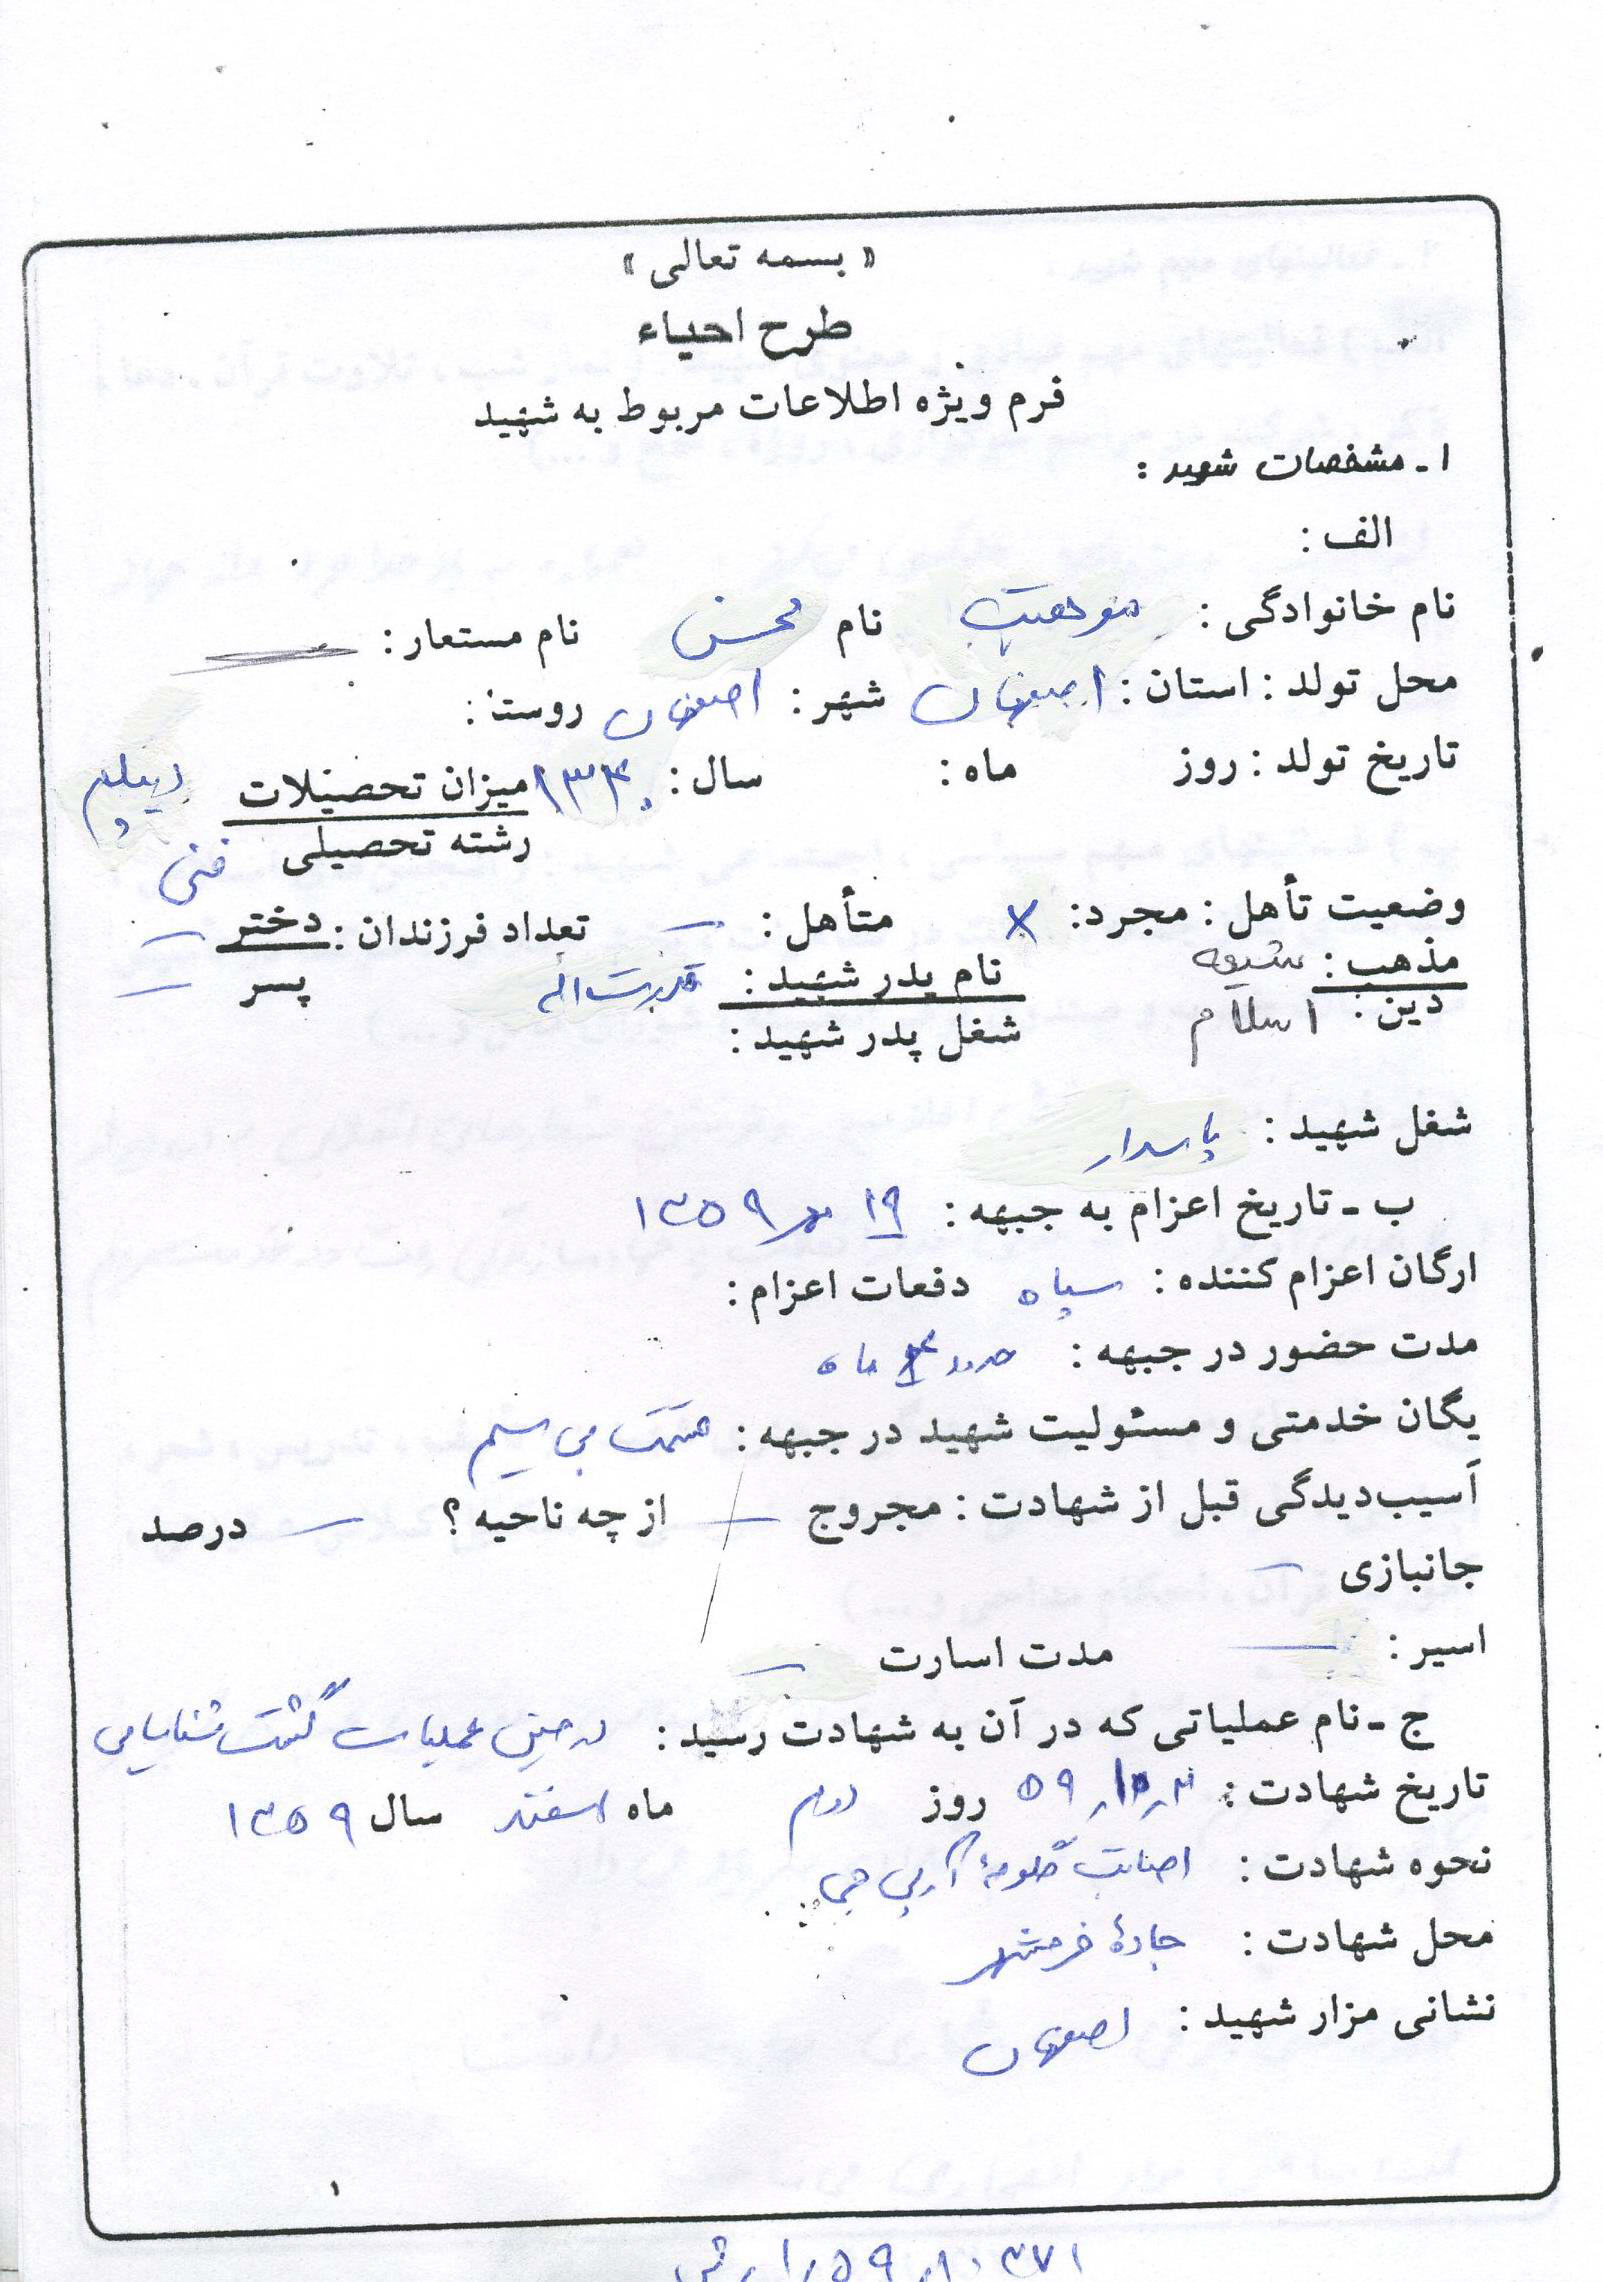 « بسمه تعالی »
طرح احیاء
فرم ویژه اطلاعات مربوط به شهید
۱ - مشخصات شهید :
الف :
نام خانوادگی : موهبت نام محسن نام مستعار :
محل تولد : استان : اصفهان شهر : اصفهان روستا :
تاریخ تولد : روز ماه : سال : ۱۳۴۰ میزان تحصیلات دیپلم
رشته تحصیلی فنی
وضعیت تأهل : مجرد : X متأهل : — تعداد فرزندان : دختر —
مذهب : شیعه نام پدر شهید : قدرت اله پسر —
دین : اسلام شغل پدر شهید :
شغل شهید : پاسدار
ب - تاریخ اعزام به جبهه : ۱۹ مهر ۱۳۵۹
ارگان اعزام کننده : سپاه دفعات اعزام :
مدت حضور در جبهه : حدود ۴ ماه
یگان خدمتی و مسئولیت شهید در جبهه : قسمت بی سیم
آسیب‌دیدگی قبل از شهادت : مجروح — از چه ناحیه ؟ — درصد
جانبازی —
اسیر : — مدت اسارت —
ج - نام عملیاتی که در آن به شهادت رسید : در حین عملیات گشت شناسایی
تاریخ شهادت : ۵۹ روز دوم ماه اسفند سال ۱۳۵۹
نحوه شهادت : اصابت گلوله آرپی جی
محل شهادت : جادهٔ خرمشهر
نشانی مزار شهید : اصفهان
۱